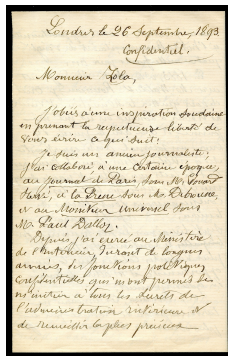 Londres le 26 Septembre, 1893
Confidentiel.
Monsieur Zola,
J'obéis à une inspiration soudaine
en prenant la respectueuse liberté de
vous écrire ce qui suit:
Je suis un ancien journaliste;
j'ai collaboré à une certaine époque,
au Journal de Paris, sous Mr Edouard
Hervé, à la Presse sous Mr
& au Moniteur Universel sous
Mr Paul Dalloz.
Depuis j'ai au Ministère
de l'Intérieur, durant de longues
années, des fonctions politiques
confidentielles qui m'ont permis de
m'initier à tous les secrets de
l'administration intérieure &
de recueillir les plus précieux